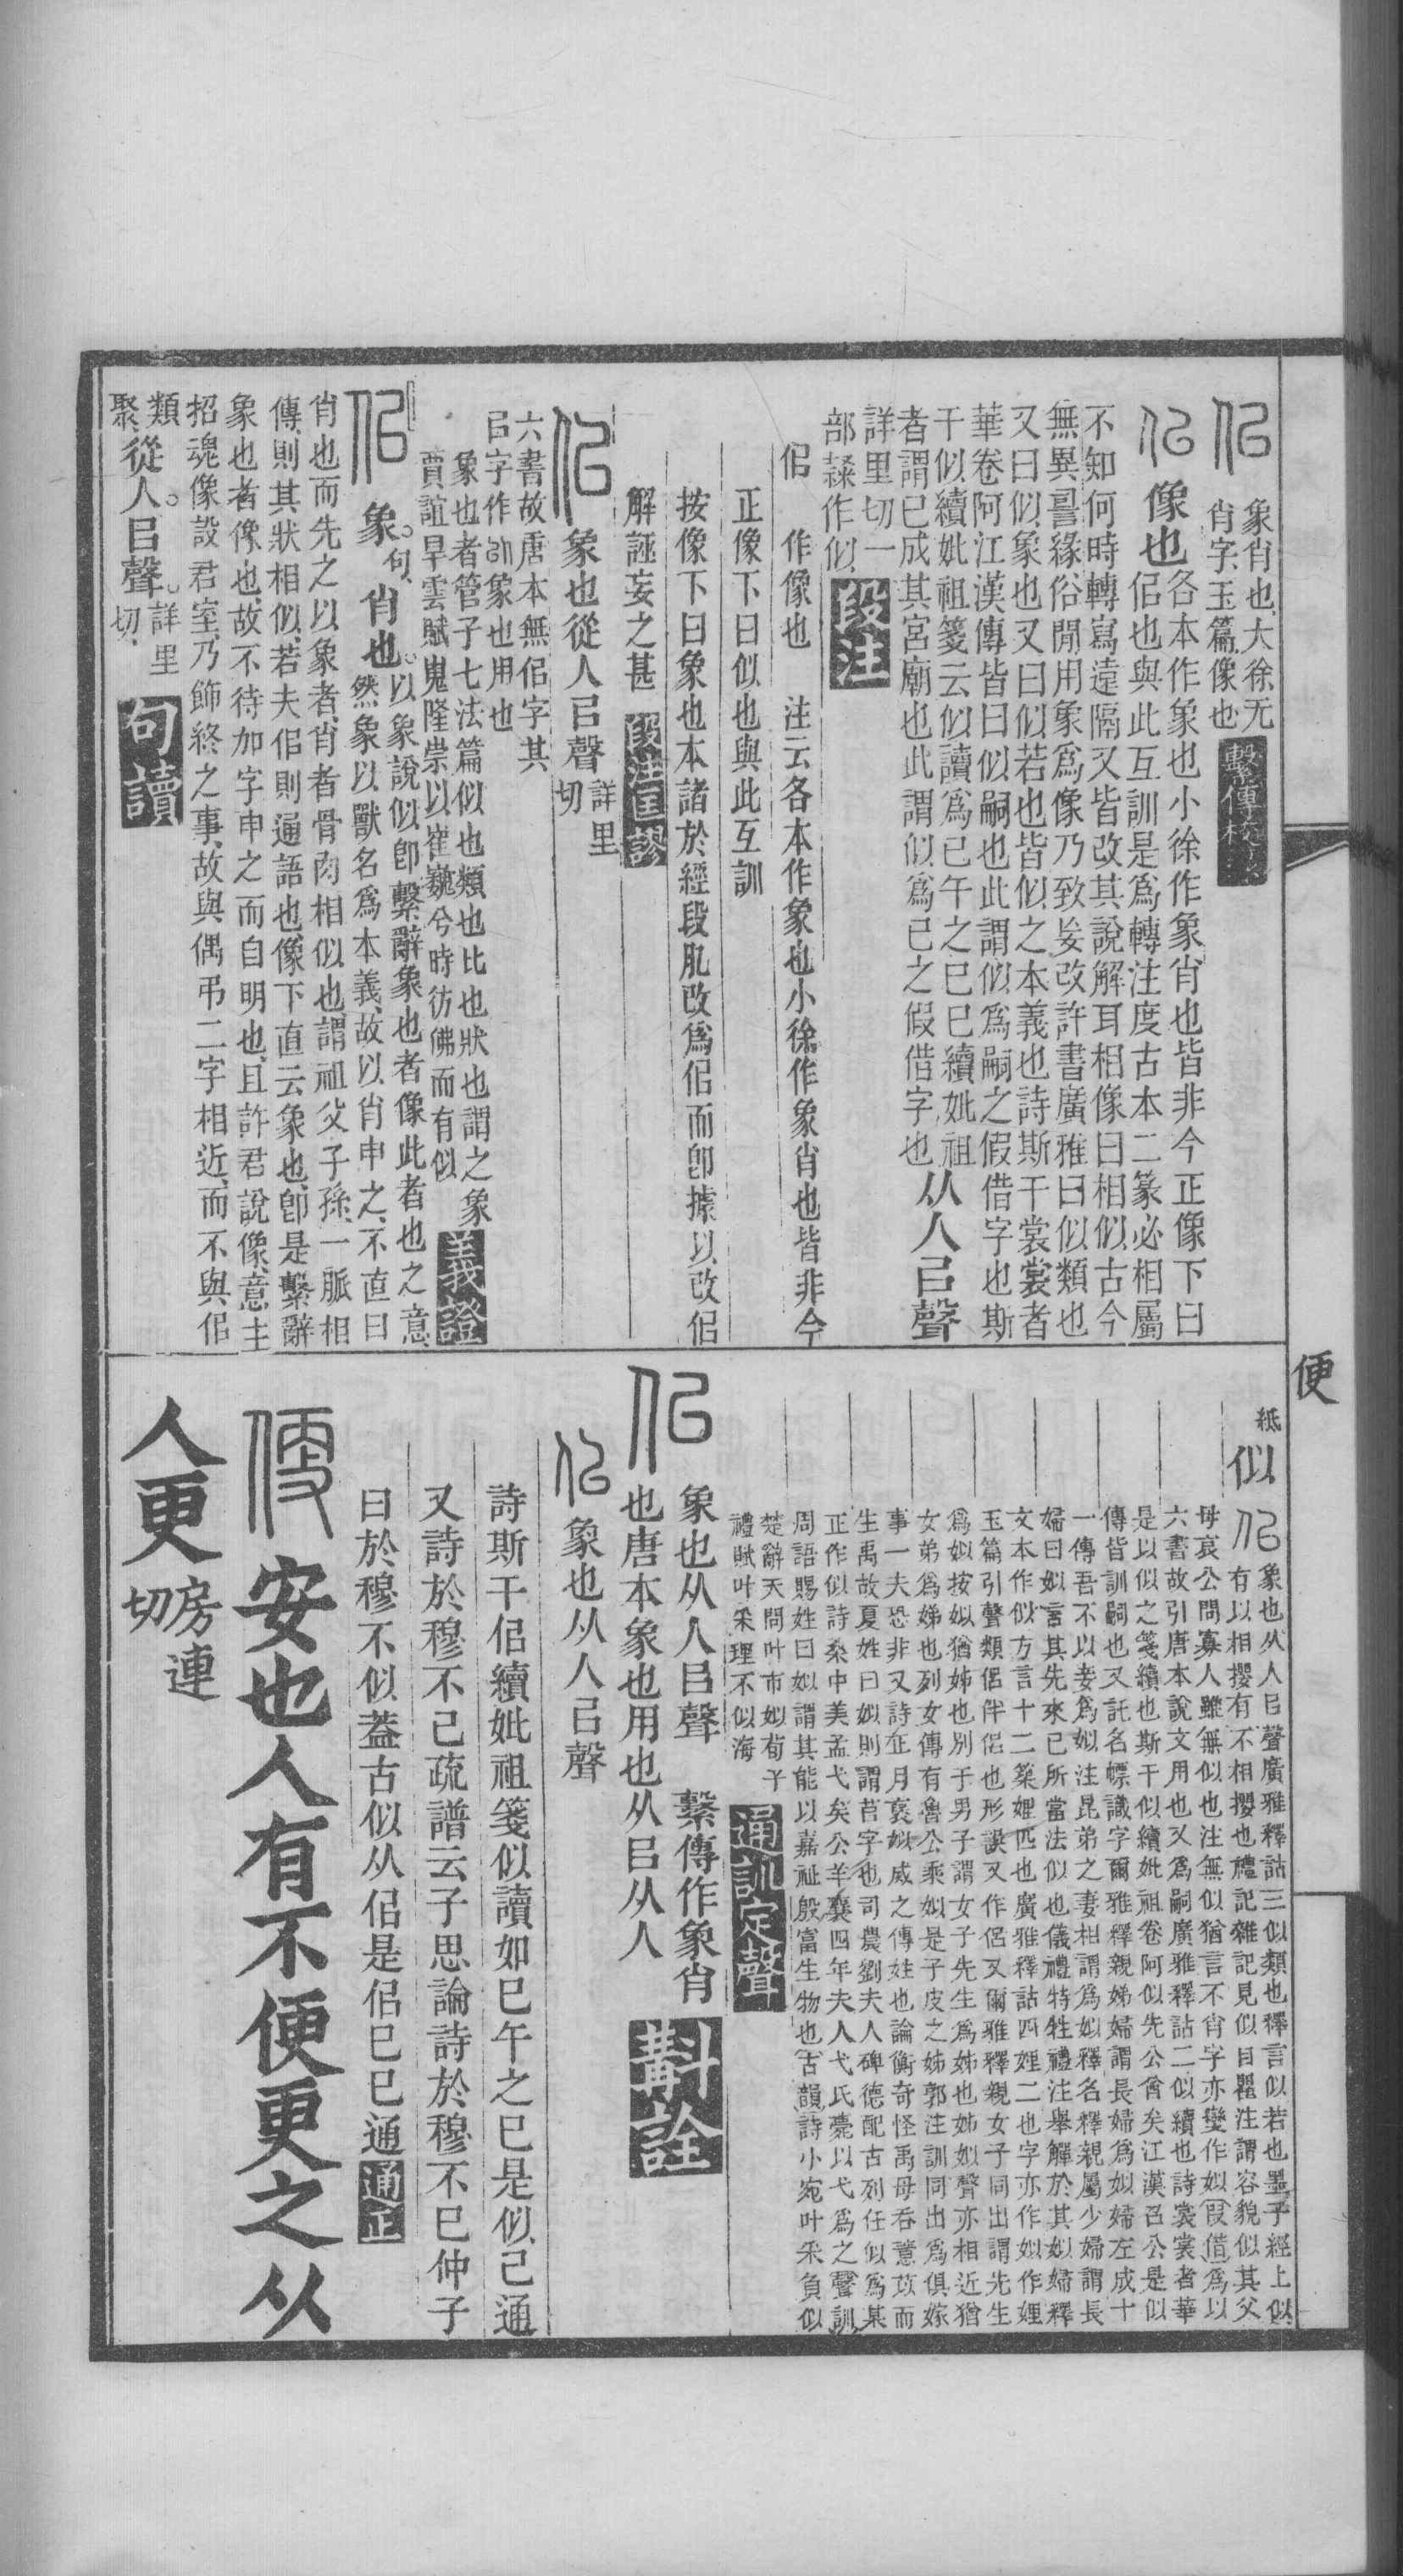 便
佀
象肖也大徐无
肖字玉篇像也
繫傳校
佀
像也
各本作象也小徐作象肖也皆非今正像下曰
佀也與此互訓是爲轉注度古本二篆必相屬
不知何時轉寫遠隔又皆改其說解耳相像曰相似古今
無異語緣俗閒用象爲像乃致妄改許書廣雅曰似類也
又曰似象也又曰似若也皆似之本義也詩斯干裳裳者
華卷阿江漢傳皆曰似嗣也此謂似爲嗣之假借字也斯
干似續妣祖箋云似讀爲巳午之巳巳續妣祖
者謂已成其宮廟也此謂似爲巳之假借字也
从人㠯聲
詳里切一
部隸作似
段注
佀　作像也　注云各本作象也小徐作象肖也皆非今
正像下曰似也與此互訓
按像下曰象也本諸於經段肊改爲佀而卽據以改佀
解誣妄之甚
段注匡謬
佀
象也從人㠯聲
詳里
切
六書故唐本無佀字其
㠯字作㠯象也用也
象也者管子七法篇似也類也比也狀也謂之象
賈誼旱雲賦嵬隆崇以崔巍兮時彷彿而有似
義證
佀
象
句
肖也
以象說似卽繫辭象也者像此者也之意
然象以獸名爲本義故以肖申之不直曰
肖也而先之以象者肖者骨肉相似也謂祖父子孫一脈相
傳則其狀相似若夫佀則通語也像下直云象也卽是繫辭
象也者像也故不待加字申之而自明也且許君說像意主
招魂像設君室乃飾終之事故與偶弔二字相近而不與佀
類
聚
從人㠯聲
詳里
切
句讀
紙
似
佀
象也从人㠯聲廣雅釋詁三似類也釋言似若也墨子經上似
有以相攖有不相攖也禮記雜記見似目瞿注謂容貌似其父
母哀公問寡人雖無似也注無似猶言不肖字亦變作姒叚借爲以
六書故引唐本說文用也又爲嗣廣雅釋詁二似續也詩裳裳者華
是以似之箋續也斯干似續妣祖卷阿似先公酋矣江漢召公是似
傳皆訓嗣也又託名幖識字爾雅釋親娣婦謂長婦爲姒婦左成十
一傳吾不以妾爲姒注昆弟之妻相謂爲姒釋名釋親屬少婦謂長
婦曰姒言其先來已所當法似也儀禮特牲禮注舉觶於其姒婦釋
文本作似方言十二築娌匹也廣雅釋詁四娌二也字亦作姒作娌
玉篇引聲類侶伴侶也形誤又作侶又爾雅釋親女子同出謂先生
爲姒按姒猶姊也別于男子謂女子先生爲姊也姊姒聲亦相近猶
女弟爲娣也列女傳有魯公乘姒是子皮之姊郭注訓同出爲俱嫁
事一夫恐非又詩正月褒姒威之傳姓也論衡奇怪禹母吞薏苡而
生禹故夏姓曰姒則謂苢字也司農劉夫人碑德配古列任似爲某
正作似詩桑中美孟弋矣公羊襄四年夫人弋氏薨以弋爲之聲訓
周語賜姓曰姒謂其能以嘉祉殷富生物也古韻詩小宛叶采負似
楚辭天問叶市姒荀子
禮賦叶采理不似海
通訓定聲
佀
象也从人㠯聲　繫傳作象肖
也唐本象也用也从㠯从人
斠詮
佀
象也从人㠯聲
詩斯干佀續妣祖箋似讀如巳午之巳是似己通
又詩於穆不已疏譜云子思論詩於穆不已仲子
曰於穆不似葢古似从佀是佀巳巳通
通正
便
安也人有不便更之从
人更
房連
切